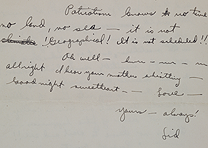 Patriotism knows no time
no land, no sea — it is not
Geographical! It is not scheduled!!
Oh well — hm — m — m
allright I hear your mothers
Goodnight sweetheart — Love —
yours — always!
Sid